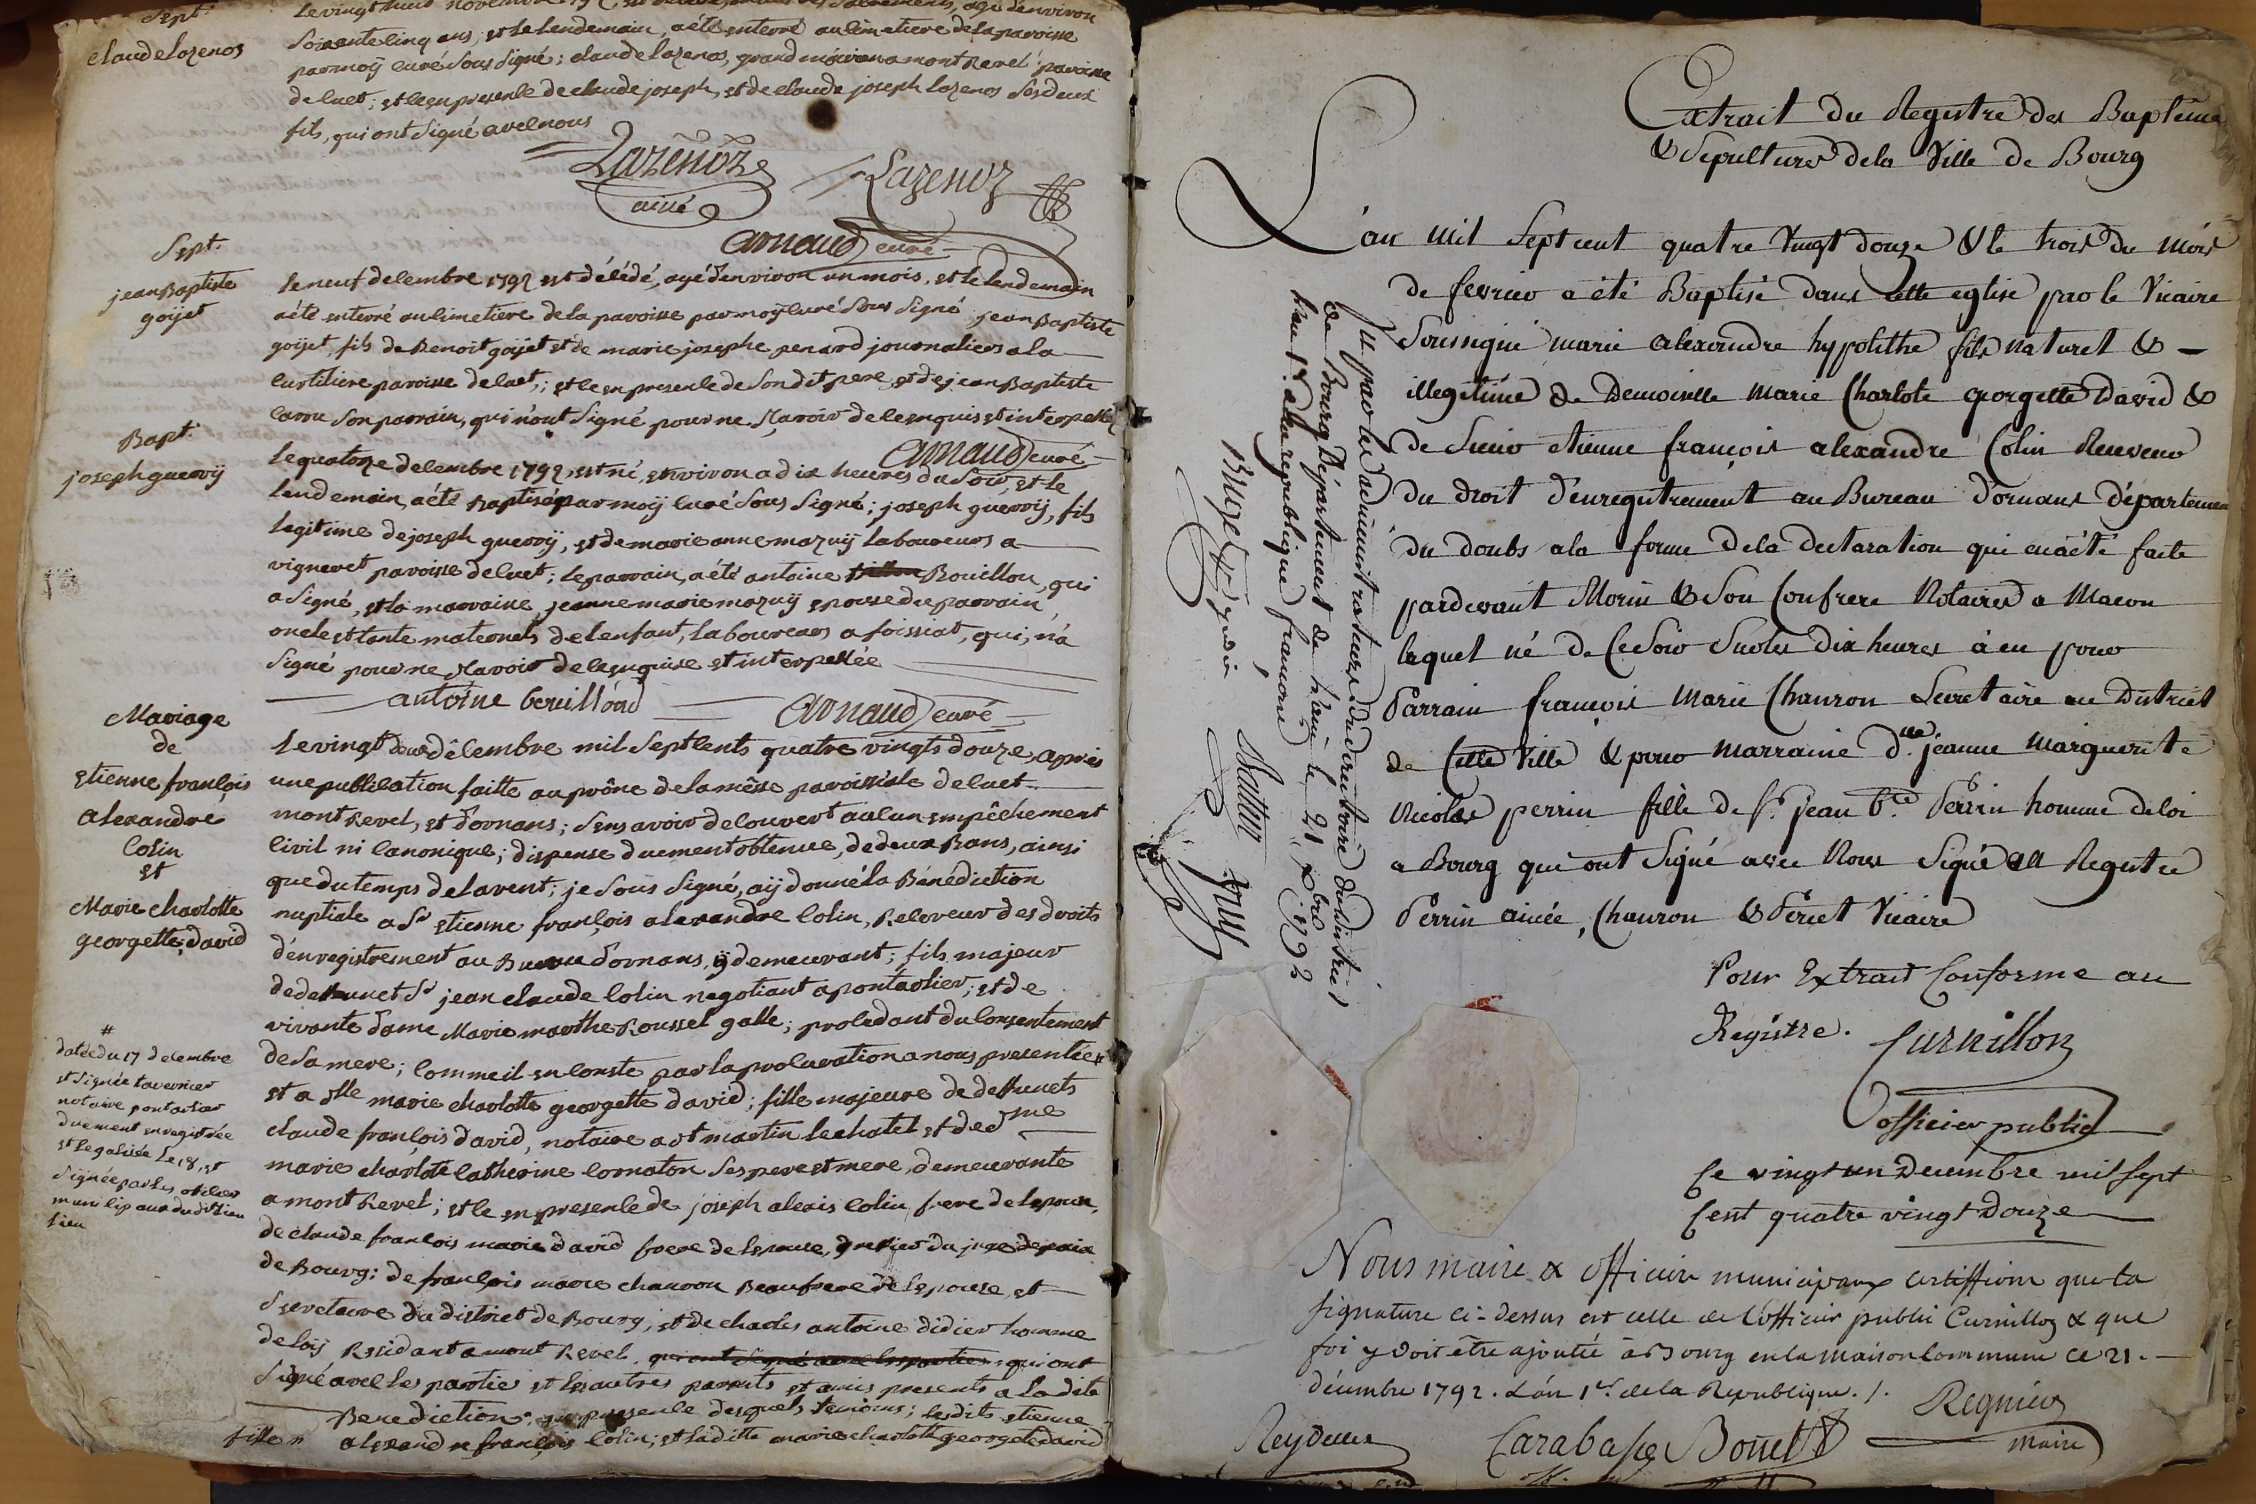 Sept.
claude lozenos
le vingt huit novembre 179 des sacrements, agé d'environ
soixante cinq ans, et le lendemain, a été enterré au cimetiere de la paroisse
par moÿ curé sous signé; claude lozenos, a mont Revel paroisse
de cuet; et ce en presence de claude joseph, et de claude joseph lozenos ses deux
fils, qui ont signé avec nous
Lazenoz
ainé
Lazenoz
arnaud curé
Sept.
jean Baptiste
goÿet
le neuf decembre 1792 est décédé, agé d'environ un mois, et le lendemain
a été enterré au cimetiere de la paroisse par moÿ curé sous signé jean Baptiste
goÿet, fils de Benoit goÿet et de marie josephe penard journaliers a la
paroisse de cuet; et ce en presence de son dit pere, et de jean Baptiste
son parrain, qui n'ont signé pour ne sçavoir de ce enquis et interpellé
arnaud curé
Bapt.
joseph guerrÿ
le quatorze decembre 1792, est né, environ a dix heures du soir, et le
lendemain, a été Baptisé par moÿ curé sous signé; joseph guerrÿ, fils
legitime de joseph guerrÿ, et de marie anne mazuÿ laboureurs a
vigneret paroisse de cuet; le parrain, a été antoine Rouillon, qui
a signé, et la marraine, jeanne marie mazuÿ epouse du parrain,
oncle et tante maternels de l'enfant, laboureurs a foissiat, qui, n'a
signé pour ne sçavoir de ce enquise et interpellée
antoine beruillond
arnaud curé
Mariage
de
etienne françois
alexandre
Colin
et
Marie charlotte
georgette david
le vingt deux décembre mil sept cents quatre vingts douze, apriés
une publication faitte au prône de la mêsse paroissiale de cuet
mont Revel, et d'ornans; sens avoir decouvert aucun empêchement
civil ni canonique; dispense duement obtenue, de deux Bans, ainsi
que du temps de lavent; je sous signé, aÿ donné la Bénédiction
nuptiale a Sr etienne françois alexandre Colin, Receveur des droits
d'enregistrement au Bureau d'ornans, ÿ demeurant; fils majeur
de deffunct Sr jean claude Colin negotiant a pontarlier; et de
vivante dame Marie marthe Roussel galle; procedant du consentement
de sa mere; comme il en conste par la procuration a nous presentée #
et a dlle marie charlotte georgette david; fille majeure de deffuncts
claude françois david, notaire a st martin le chatel et de dme
marie charlote catherine cornaton ses pere et mere, demeurante
a mont Revel; et ce en presence de joseph alexis colin frere de lepoux,
de claude françois marie david frere de lepouse, greffier du juge de paix
de Bourg; de françois marie chanron Beaufrere de lepouse, et
secretaire du district de Bourg; et de charles antoine didier homme
de loÿ Residant a mont Revel, qui ont signé avec les parties; qui ont
signé avec les parties et les autres parents et amis presents a la dite
Benediction; en presence desquels temoins; lesdits etienne
alexandre françois Colin; et ladite marie charlotte georgette david
#
datée du 17 decembre
et signée tavernier
notaire pontarlier
duement enregistrée
et legalisée le 18, et
signée par les officiers
municipaux dudit lieu
lieu
Extrait du Registre des Baptême
& Sepultures de la Ville de Bourg
L'an mil Sept cent quatre Vingt douze & le trois du mois
de fevrier a été Baptisé dans cette eglise par le Vicaire
Soussigné marie alexandre hypolithe fils naturel & –
illegitime de Demoiselle Marie Charlote georgette David &
de Sieur etienne françois alexandre Colin Receveur
du droit d'enregistrement au Bureau d'ornans département
du doubs a la forme de la declaration qui en a été faite
pardevant Morin & Son Confrere Notaires a Macon
lequel né de ce Soir Sur les dix heures à eu pour
Parrain françois Marie Chanron Secretaire au District
de Cette Ville & pour Marraine dlle jeanne Marguerite
Nicolas perrin fille de Sr jean bte Perrin homme de loi
a Bourg qui ont Signé avec Nous Signé au Registre
Perrin ainée, Chanron & Perret Vicaire
Pour Extrait Conforme au
Registre.
Curnillon
officier public
Ce vingt un Decembre mil Sept
Cent quatre vingt Douze
Vu par les administrateurs du directoire du district
de Bourg Département de l'ain le 21 Xbre 1792
l'an 1er de la republique françoise
Nous maire & officiers municipaux certiffions que la
signature ci-dessus est celle de l'officier public Curnillon & que
foi y doit être ajoutée à Bourg en la maison Commune ce 21.
décembre 1792. L'an 1er de la Republique. /.
Reydellet
Carabasse
Bonet
Regnier
Maire